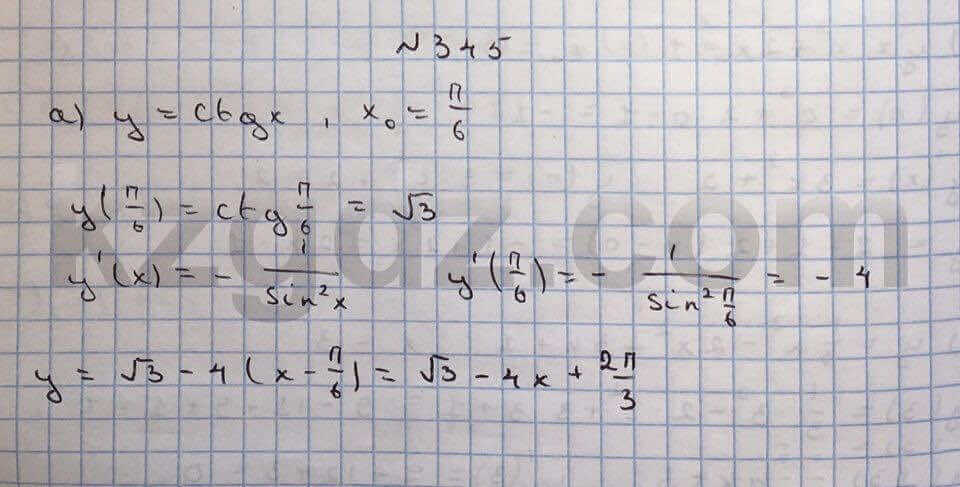 № 345
а) y = ctgx , x₀ = π/6
y(π/6) = ctg π/6 = √3
y'(x) = - 1/sin²x y'(π/6) = - 1/sin² π/6 = - 4
y = √3 - 4(x - π/6) = √3 - 4x + 2π/3
kzgdz.com